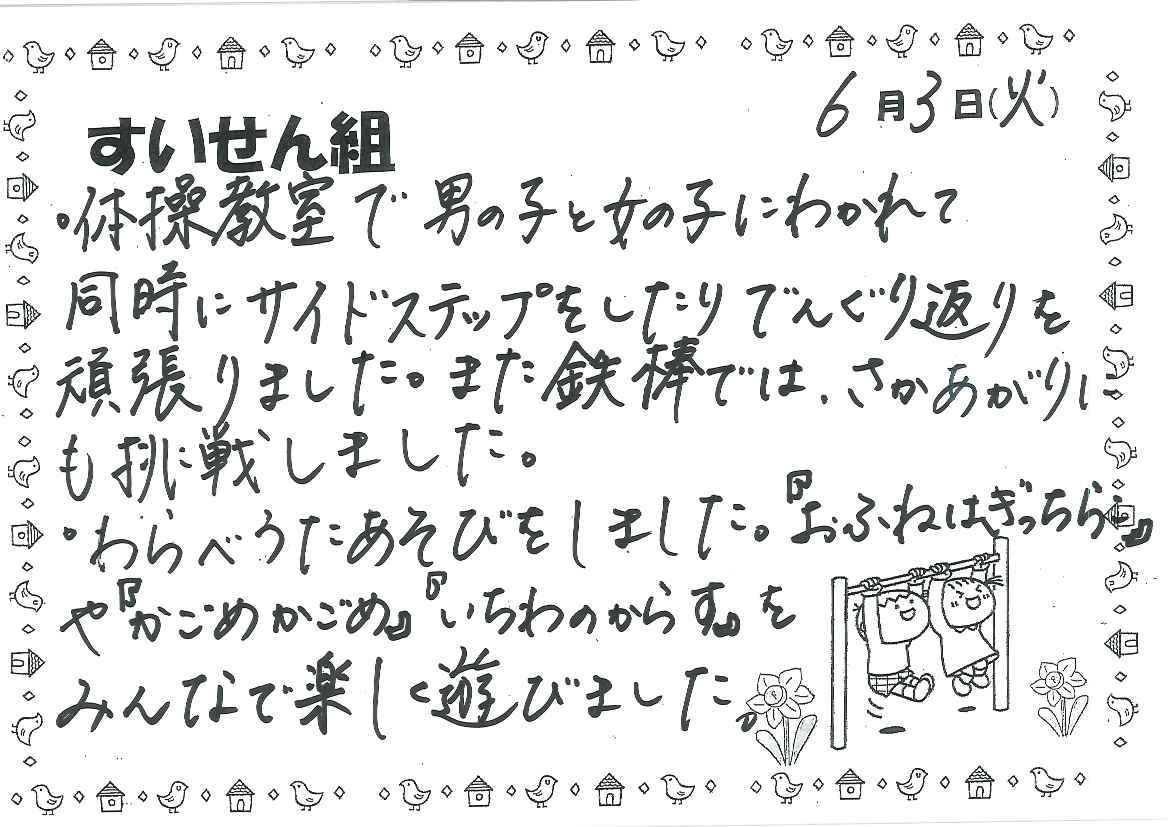 6月3日(火)
すいせん組
。体操教室で男の子と女の子にわかれて
同時にサイドステップをしたりでんぐり返りを
頑張りました。また鉄棒では、さかあがりに
も挑戦しました。
。わらべうたあそびをしました。『おふねはぎっちらこ』
や『かごめかごめ』『いちわのからす』を
みんなで楽しく遊びました。